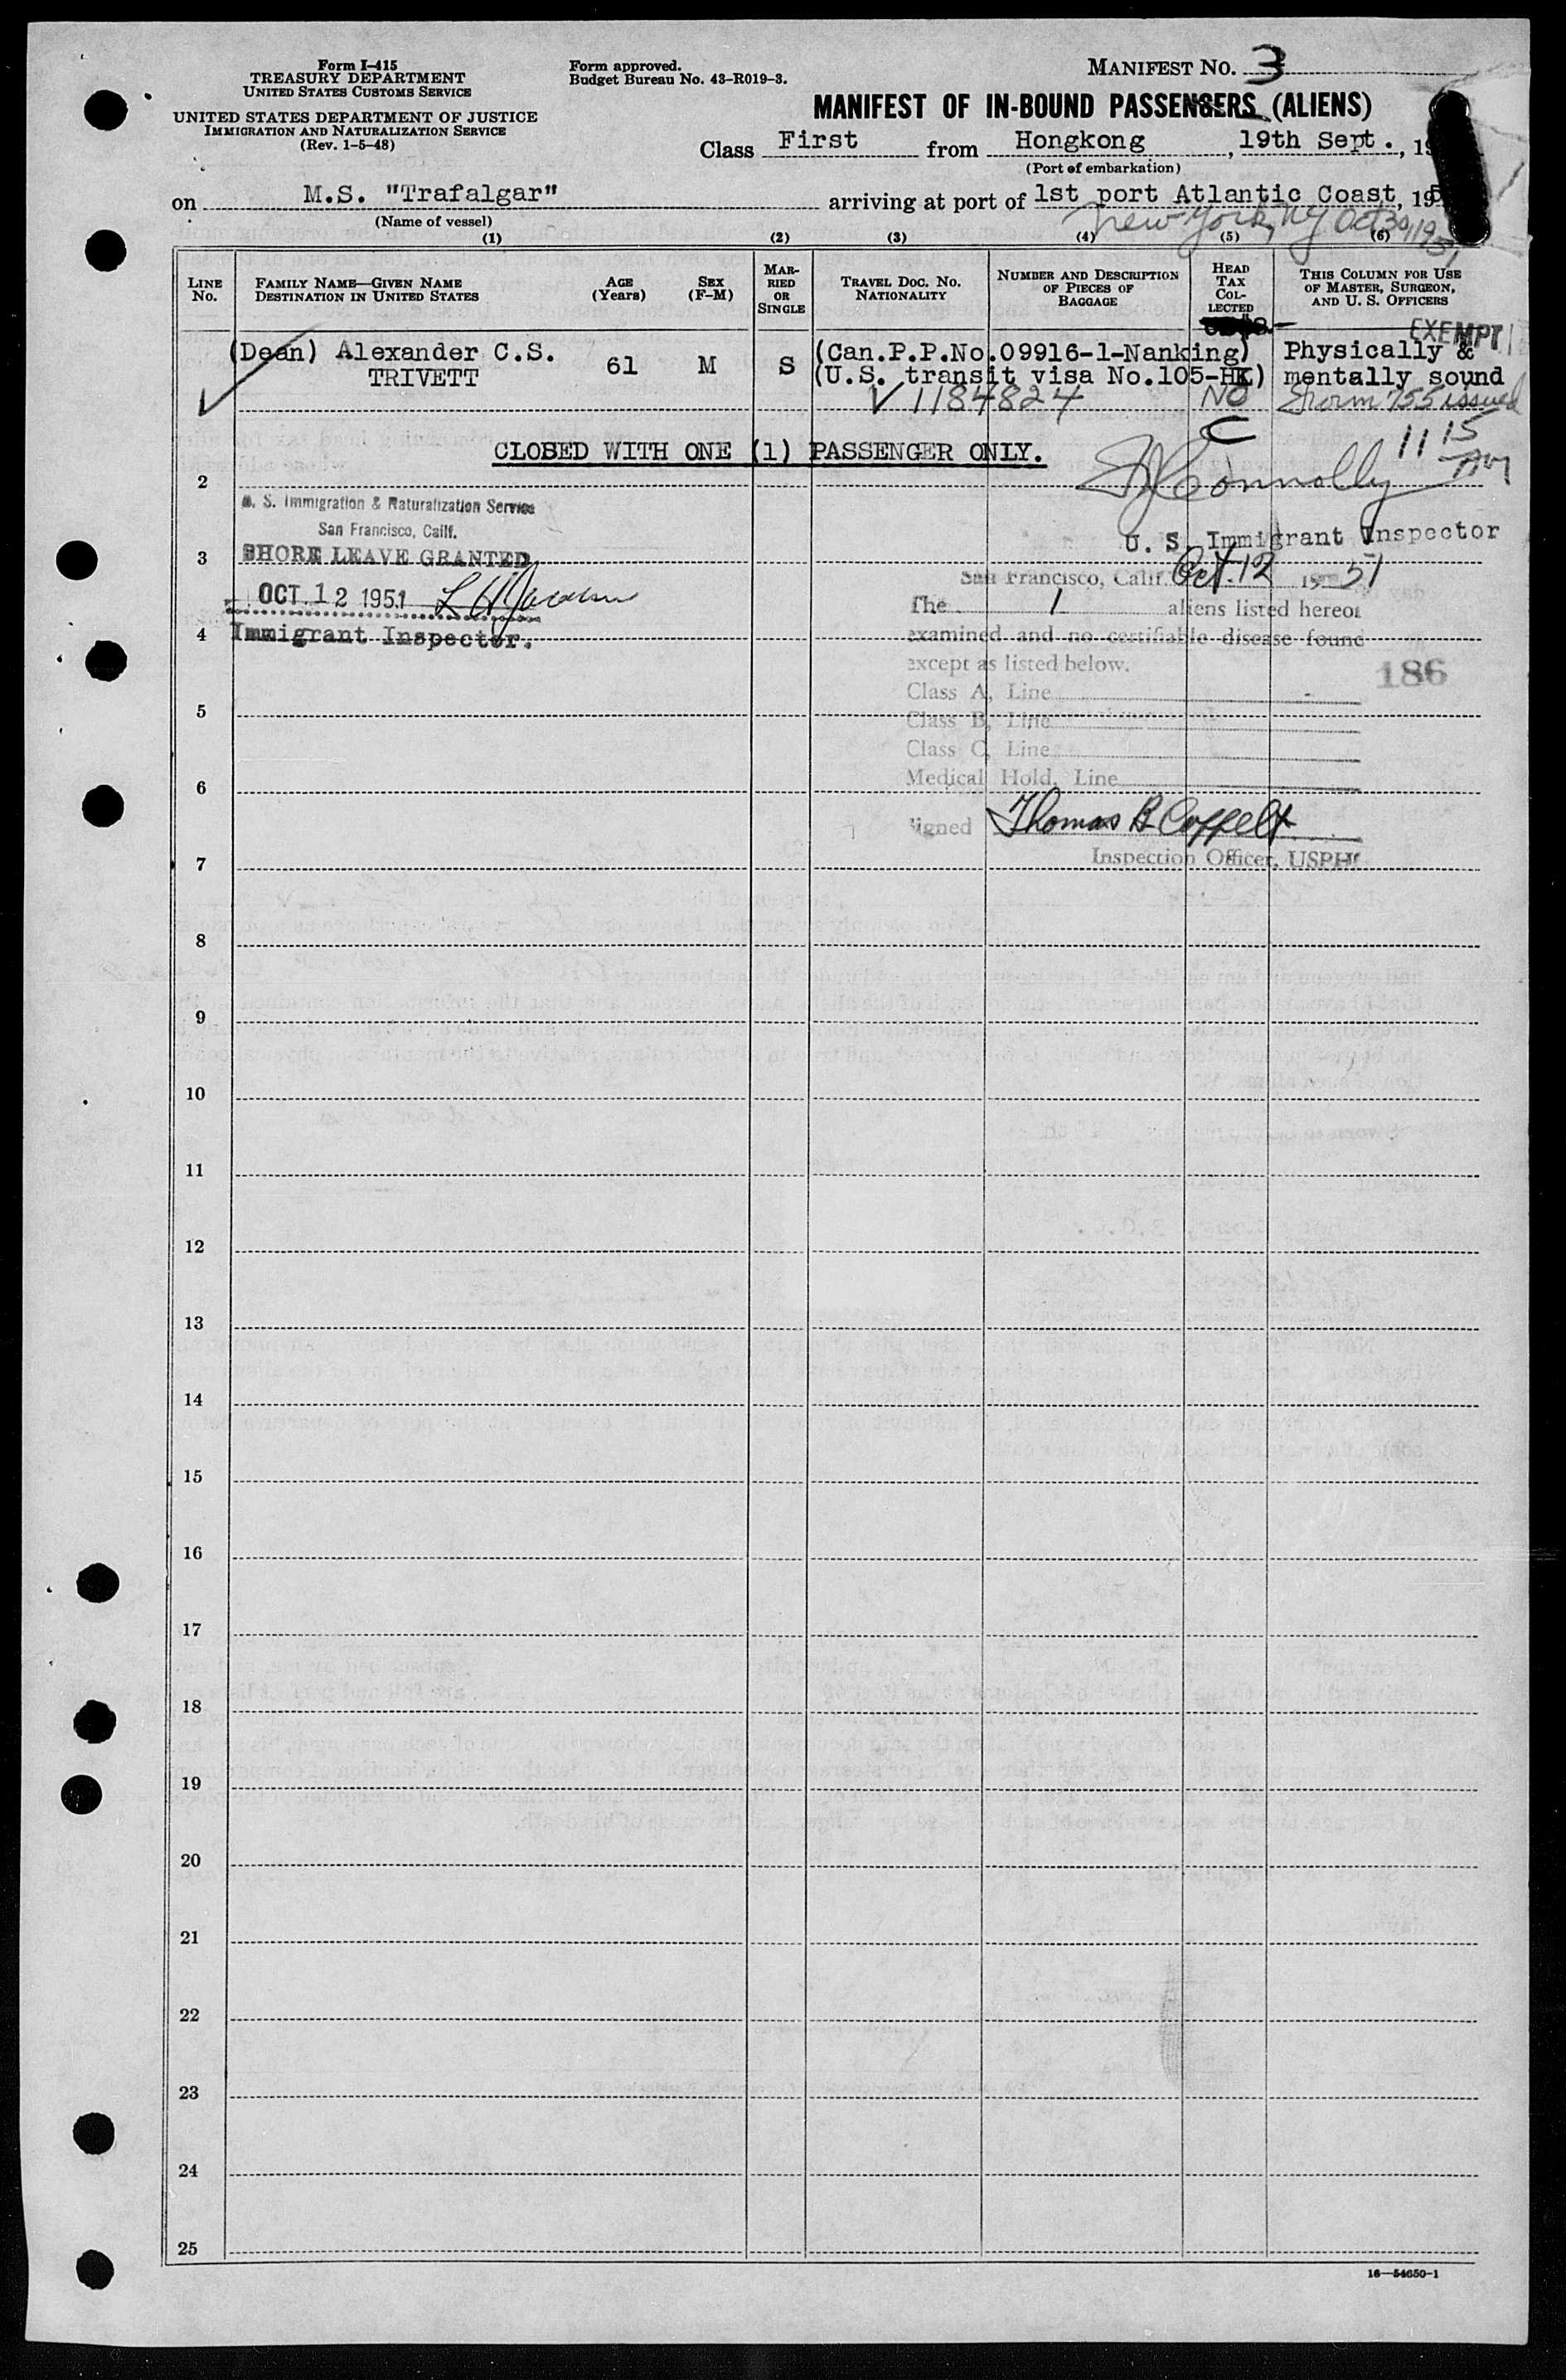 Form I-415
TREASURY DEPARTMENT
UNITED STATES CUSTOMS SERVICE
UNITED STATES DEPARTMENT OF JUSTICE
IMMIGRATION AND NATURALIZATION SERVICE
(Rev. 1-5-48)
Form approved.
Budget Bureau No. 43-R019-3.
MANIFEST No. 3
MANIFEST OF IN-BOUND PASSENGERS (ALIENS)
Class First from Hongkong, 19th Sept., 19
(Port of embarkation)
on M.S. "Trafalgar" arriving at port of 1st port Atlantic Coast, 195
(Name of vessel)
New York, NY Oct 30, 1951
(1) (2) (3) (4) (5) (6)
LINE No.
FAMILY NAME—GIVEN NAME
DESTINATION IN UNITED STATES
AGE (Years)
SEX (F-M)
MARRIED OR SINGLE
TRAVEL DOC. NO.
NATIONALITY
NUMBER AND DESCRIPTION OF PIECES OF BAGGAGE
HEAD TAX COLLECTED
THIS COLUMN FOR USE OF MASTER, SURGEON, AND U. S. OFFICERS
EXEMPT
(Dean) Alexander C.S. 61 M S (Can.P.P.No.09916-1-Nanking) Physically &
TRIVETT (U.S. transit visa No.105-HK) mentally sound
V 1184824 NO C Form 755 issued
11 15
CLOSED WITH ONE (1) PASSENGER ONLY.
Connolly
2
U. S. Immigration & Naturalization Service
San Francisco, Calif.
U. S. Immigrant Inspector
3 SHORE LEAVE GRANTED
San Francisco, Calif. Oct. 12 19 51
OCT 12 1951
The 1 aliens listed hereon
4 Immigrant Inspector.
examined and no certifiable disease found
except as listed below.
186
Class A, Line
5
Class B, Line
Class C, Line
6
Medical Hold, Line
Signed Thomas B Coffelt
7
Inspection Officer, USPHS
8
9
10
11
12
13
14
15
16
17
18
19
20
21
22
23
24
25
16—54650-1